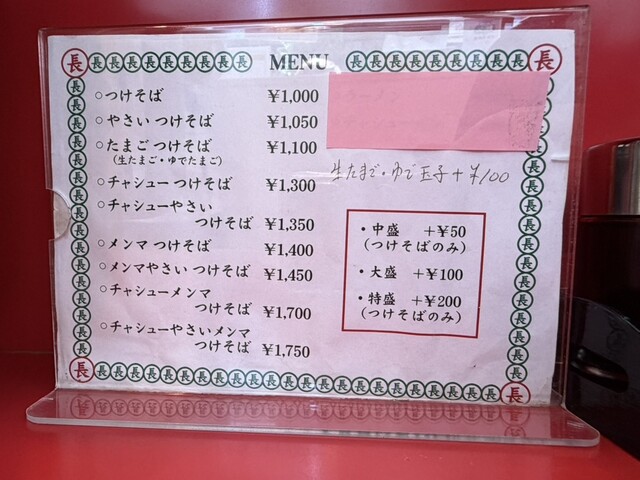 MENU
○つけそば ¥1,000
○やさい つけそば ¥1,050
○たまご つけそば ¥1,100
(生たまご・ゆでたまご)
○チャシュー つけそば ¥1,300
○チャシューやさい
つけそば ¥1,350
○メンマ つけそば ¥1,400
○メンマやさい つけそば ¥1,450
○チャシューメンマ
つけそば ¥1,700
○チャシューやさいメンマ
つけそば ¥1,750
生たまご・ゆで玉子+¥100
・中盛 +¥50
(つけそばのみ)
・大盛 +¥100
・特盛 +¥200
(つけそばのみ)
長